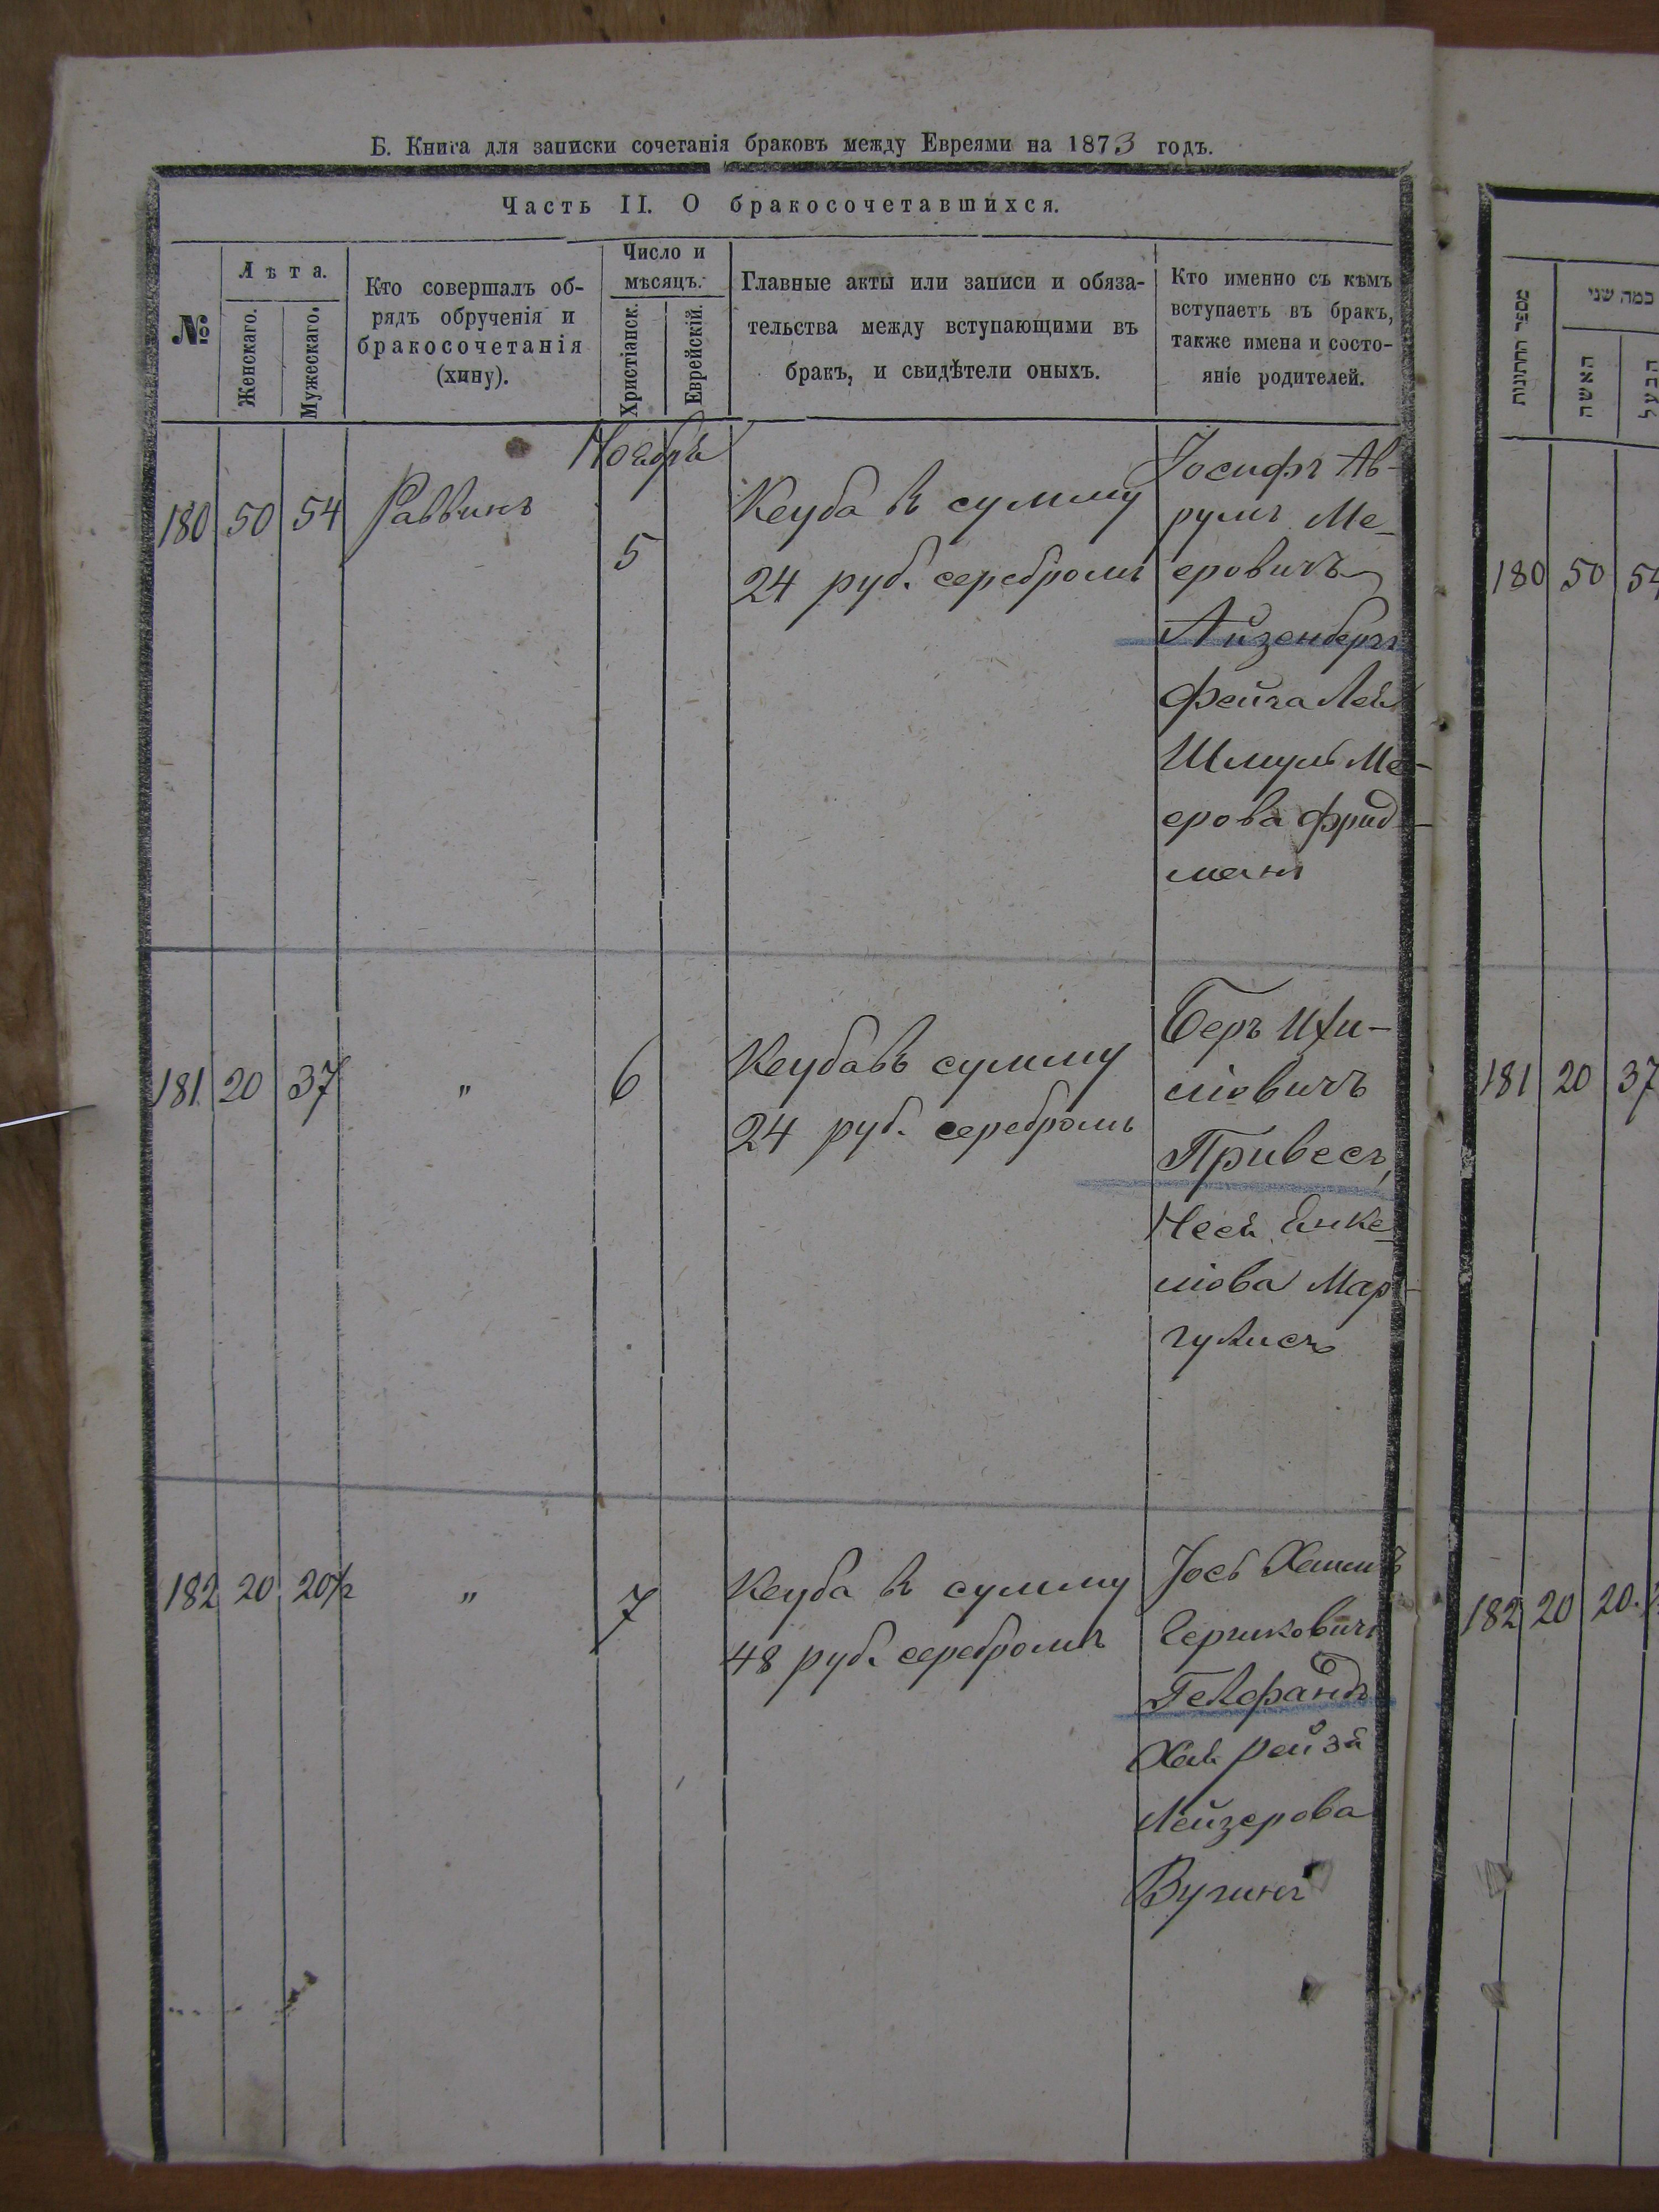 Б. Книга для записки сочетанія браковъ между Евреями на 1873 годъ.
Часть II. О бракосочетавшихся.
№
Лѣта.
Женскаго.
Мужескаго.
Кто совершалъ об-
рядъ обрученія и
бракосочетанія
(хину).
Число и
мѣсяцъ.
Христіанск.
Еврейскій.
Главные акты или записи и обяза-
тельства между вступающими въ
бракъ, и свидѣтели оныхъ.
Кто именно съ кѣмъ
вступаетъ въ бракъ,
также имена и состо-
яніе родителей.
Ноябрь
180 50 54 Раввинъ 5
Кеуба въ сумму
24 руб. серебромъ
Іосифъ Ав-
румъ Ме-
еровичъ
Айзенбергъ
Фейга Лея
Шмуль Ме-
ерова Фрид-
манъ
181 20 37 " 6
Кеуба въ сумму
24 руб. серебромъ
Беръ
Привесъ,
Неся Янке-
Мар-
гулисъ
182 20 20½ " 7
Кеуба въ сумму
48 руб. серебромъ
Іось
Гелфандъ
Хая Рейзя
Лейзерова
מספר החתונות
כמה שני
האשה
הבעל
180 50 54
181 20 37
182 20 20